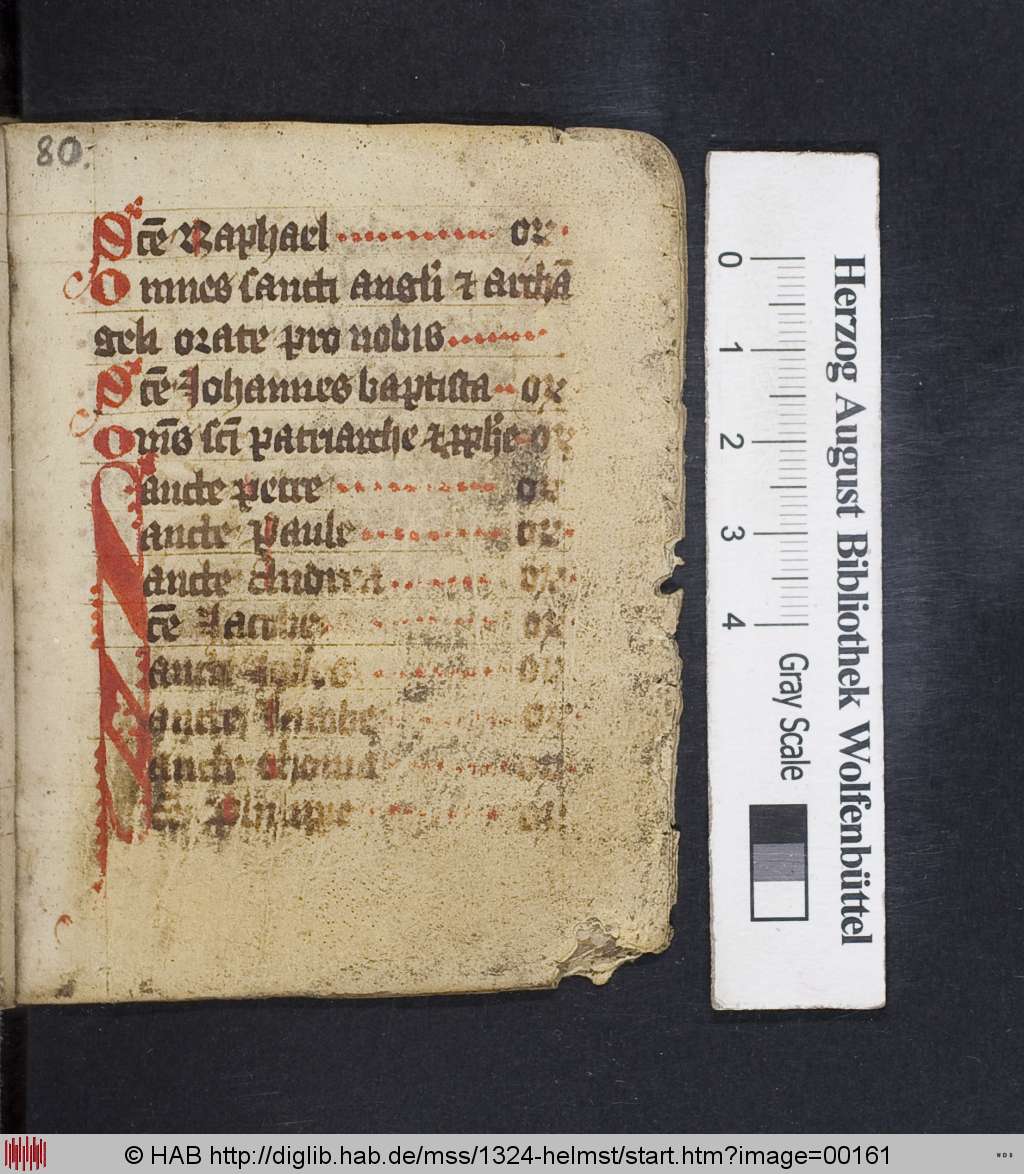 80.
Sctē Raphael or
Omnes sancti angli ⁊ archā
geli orate pro nobis
Sctē Johannes baptista or
Om̄s scī patriarche ⁊ pphe or
ancte petre or
ancte Paule or
ancte Andrea or
ctē Jacobe or
ancte or
ancte Jacobe or
ancte thoma or
Philippe or
Herzog August Bibliothek Wolfenbüttel
0 1 2 3 4 Gray Scale
© HAB http://diglib.hab.de/mss/1324-helmst/start.htm?image=00161